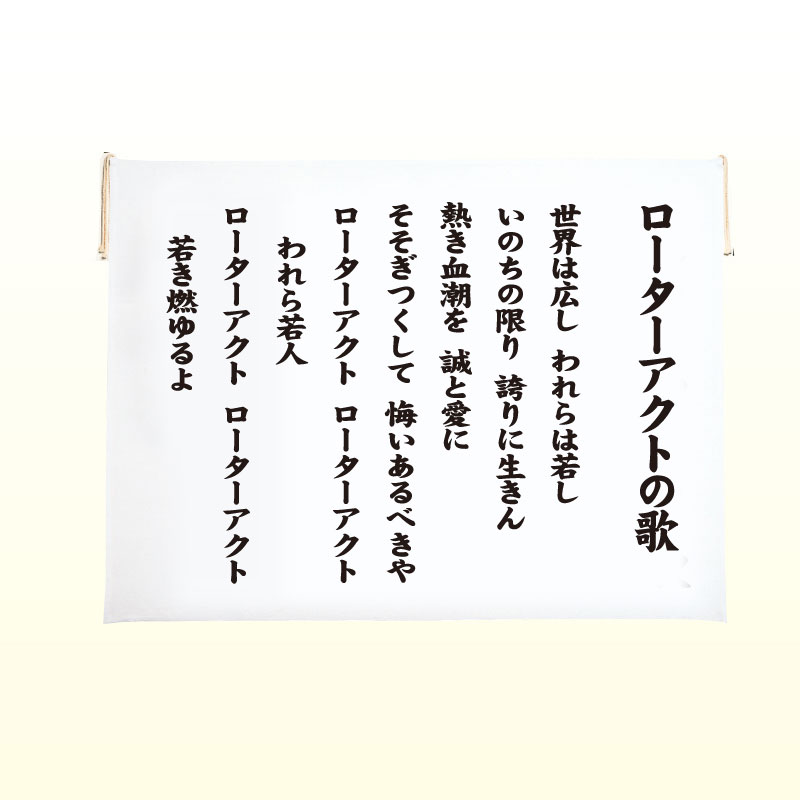 ローターアクトの歌
世界は広し われらは若し
いのちの限り 誇りに生きん
熱き血潮を 誠と愛に
そそぎつくして 悔いあるべきや
ローターアクト ローターアクト
われら若人
ローターアクト ローターアクト
若き燃ゆるよ